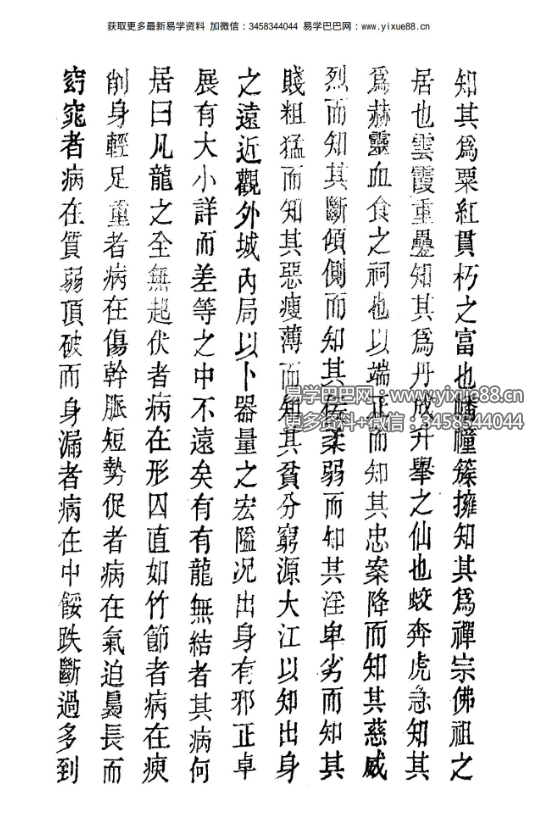 获取更多最新易学资料 加微信：3458344044 易学巴巴网：www.yixue88.cn
知其爲粟紅貫朽之富也幡幢簇擁知其爲禪宗佛祖之
居也雲霞重疊知其爲丹成升舉之仙也蛟奔虎急知其
爲赫靈血食之祠也以端正而知其忠案降而知其慈威
烈而知其斷傾側而知其佞柔弱而知其淫卑劣而知其
賤粗猛而知其惡瘦薄而知其貧分窮源大江以知出身
之遠近觀外城內局以卜器量之宏隘况出身有邪正卓
展有大小詳而差等之中不遠矣有有龍無結者其病何
居曰凡龍之全無起伏者病在形囚直如竹節者病在
削身輕足重者病在傷幹脈短勢促者病在氣迫長而
窈窕者病在質弱頂破而身漏者病在中餒跌斷過多到
易学巴巴网：www.yixue88.cn
更多资料+微信：3458344044